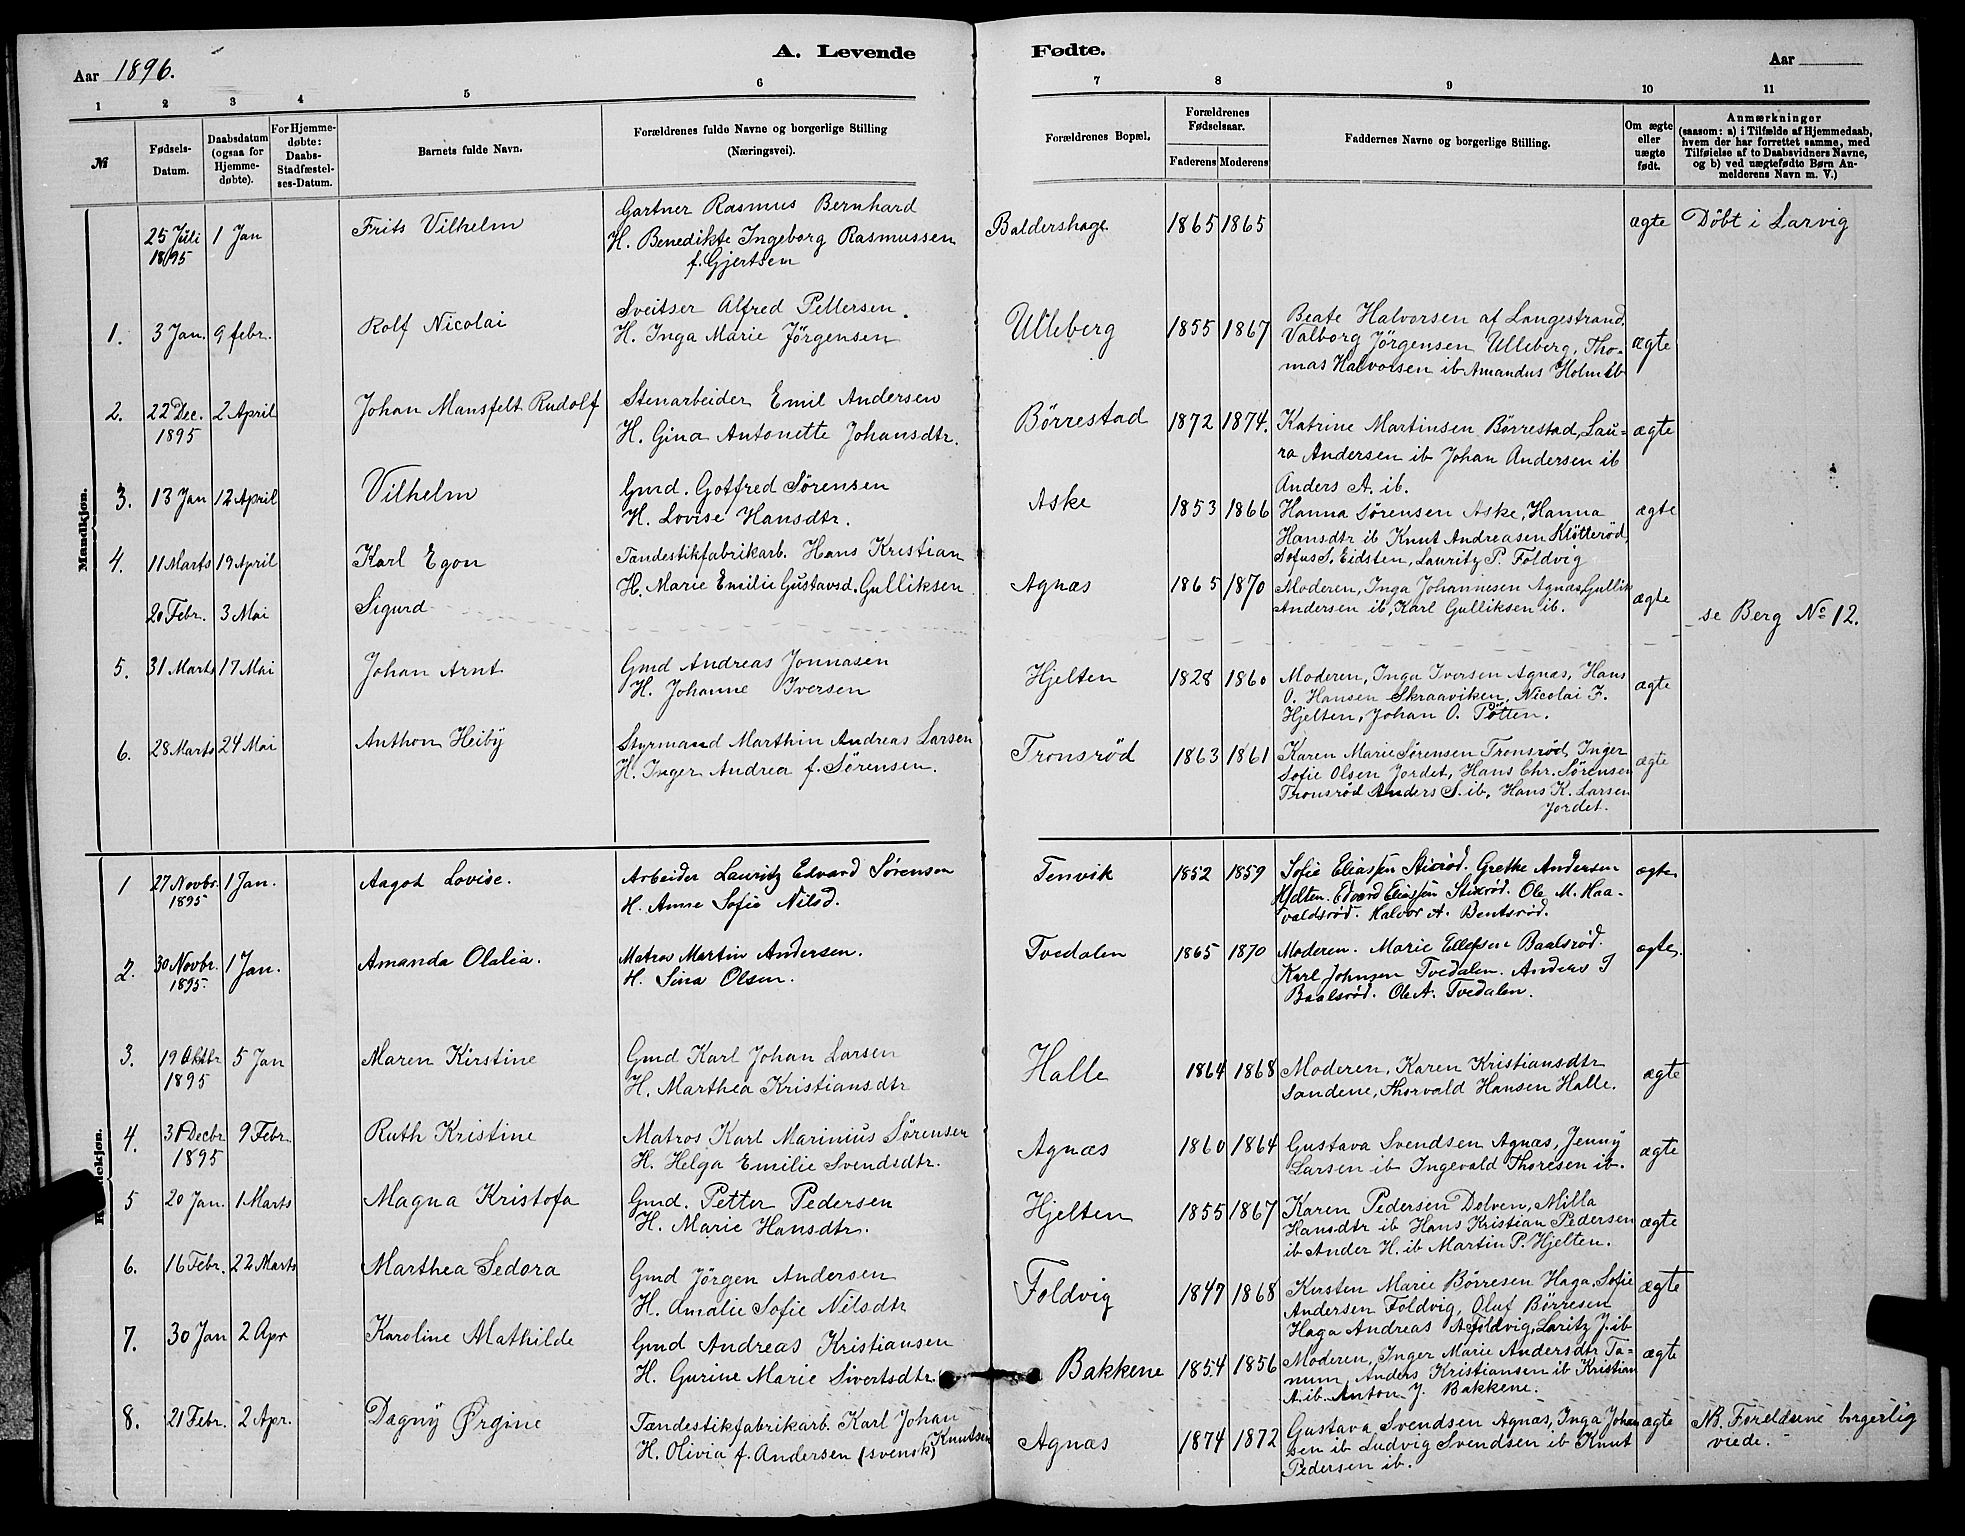 Aar 1896.
A. Levende
Fødte.
Aar
1
2
3
4
5
6
7
8
9
10
11
№
Fødsels-
Datum.
Daabsdatum
(ogsaa for
Hjemme-
døbte).
For Hjemme-
døbte:
Daabs-
Stadfæstel-
ses-Datum.
Barnets fulde Navn.
Forældrenes fulde Navne og borgerlige Stilling
(Næringsvei).
Forældrenes Bopæl.
Forældrenes
Fødselsaar.
Faderens Moderens
Faddernes Navne og borgerlige Stilling.
Om ægte
eller
uægte
født.
Anmærkninger
(saasom: a) i Tilfælde af Hjemmedaab,
hvem der har forrettet samme, med
Tilføielse af to Daabsvidners Navne,
og b) ved uægtefødte Børn An-
melderens Navn m. V.)
Mandkjøn.
25 Juli
1895
1 Jan
Frits Vilhelm
Gartner Rasmus Bernhard
H. Benedikte Ingeborg Rasmussen
f. Gjertsen
Baldershage
1865 1865
ægte
Döbt i Larvig
1. 3 Jan. 9 febr.
Rolf Nicolai
Sveitser Alfred Pettersen.
H. Inga Marie Jörgensen
Ulleberg
1855 1867
Beate Halvorsen af Langestrand,
Valborg Jörgensen Ulleberg, Tho-
mas Halvorsen ib Amandus Holm ib
ægte
2. 22 Dec. 2 April
1895
Johan Mansfelt Rudolf
Stenarbeider Emil Andersen
H. Gina Antonette Johansdtr.
Børrestad
1872 1874.
Katrine Martinsen Børrestad, Lau-
ra Andersen ib Johan Andersen ib
Anders A. ib.
ægte
3. 13 Jan 12 April
Vilhelm
Gmd. Gotfred Sörensen
H. Lovise Hansdtr.
Aske
1853 1866
Hanna Sørensen Aske, Hanna
Hansdtr ib Knut Andreasen Kløtterød,
Sofus S. Eidsten, Lauritz P. Foldvig
ægte
4. 11 Marts 19 April
Karl Egon
Tandestikfabrikarb. Hans Kristian
H. Marie Emilie Gustavsd. Gulliksen
Agnæs
1865 1870
Moderen, Inga Johannesen Agnæs, Gullik
Andersen ib, Karl Gulliksen ib.
ægte
20 Febr. 3 Mai
Sigurd
se Berg No 12.
5. 31 Marts 17 Mai
Johan Arnt
Gmd Andreas Jonnasen
H. Johanne Iversen
Hjelten
1828 1860
Moderen, Inga Iversen Agnæs, Hans
O. Hansen Skraaviken, Nicolai F.
Hjelten, Johan O. Pötten.
ægte
6. 28 Marts 24 Mai
Anthon Heiby
Styrmand Marthin Andreas Larsen
H. Inger Andrea f. Sørensen.
Tronsrød
1863 1861
Karen Marie Sørensen Tronsrød, Inger
Sofie Olsen Jordet, Hans Chr. Sørensen
Tronsrød Anders S. ib, Hans K. Larsen
Jordet.
ægte
1 27 Novbr. 1 Jan.
1895
Aagot Lovise.
Arbeider Lauritz Edvard Sørensen
H. Anne Sofie Nilsd.
Tenvik
1852 1859
Sofie Eliassen Stixrød. Grethe Andersen
Hjelten. Edvard Eliassen Stixrød. Ole M. Haa-
valdsrød. Halvor A. Bentsrød.
ægte
2. 30 Novbr. 1 Jan.
1895.
Amanda Olalia.
Matros Martin Andersen.
H. Sina Olsen.
Tvedalen
1865 1870
Moderen. Marie Ellefsen Baalsrød.
Karl Johnsen Tvedalen. Anders J
Baalsrød. Ole A. Tvedalen.
ægte.
3. 19 Oktbr 5 Jan
1895
Maren Kirstine
Gmd Karl Johan Larsen
H. Marthea Kristiansdtr
Halle
1864 1868
Moderen, Karen Kristiansdtr
Sandene, Thorvald Hansen Halle.
ægte
4. 31 Decbr 9 Febr
1895
Ruth Kristine
Matros Karl Marinius Sørensen
H. Helga Emilie Svendsdtr.
Agnæs
1860 1864
Gustava Svendsen Agnæs, Jenny
Larsen ib Ingevald Thoresen ib.
ægte
5 20 Jan. 1 Marts
Magna Kristofa
Gmd. Petter Pedersen
H. Marie Hansdtr.
Hjelten
1855 1867
Karen Pedersen Dolven, Milla
Hansdtr ib Hans Kristian Pedersen
ib Ander H. ib Martin P. Hjelten.
ægte
6. 16 Febr. 22 Marts
Marthea Sedora
Gmd Jörgen Andersen
H. Amalie Sofie Nilsdtr
Foldvig
1847 1868
Kirsten Marie Børresen Haga, Sofie
Andersen Foldvig, Oluf Børresen
Haga Andreas A Foldvig, Laritz J. ib
ægte
7. 30 Jan 2 Apr
Karoline Mathilde
Gmd Andreas Kristiansen
H. Gurine Marie Sivertsdtr.
Bakkene
1854 1856
Moderen, Inger Marie Andersdtr Ta-
num, Anders Kristiansen ib Kristian
A. ib. Anton J. Bakkene.
ægte
8. 21 Febr. 2 Apr.
Dagny Ørgine
Tændestikfabrikarb. Karl Johan
Knutsen
H. Olivia f. Andersen (svensk)
Agnæs
1874 1872
Gustava Svendsen Agnæs, Inga Johan
sen ib Ludvig Svendsen ib Knut
Pedersen ib.
ægte
NB. Foreldrene borgerlig
viede.